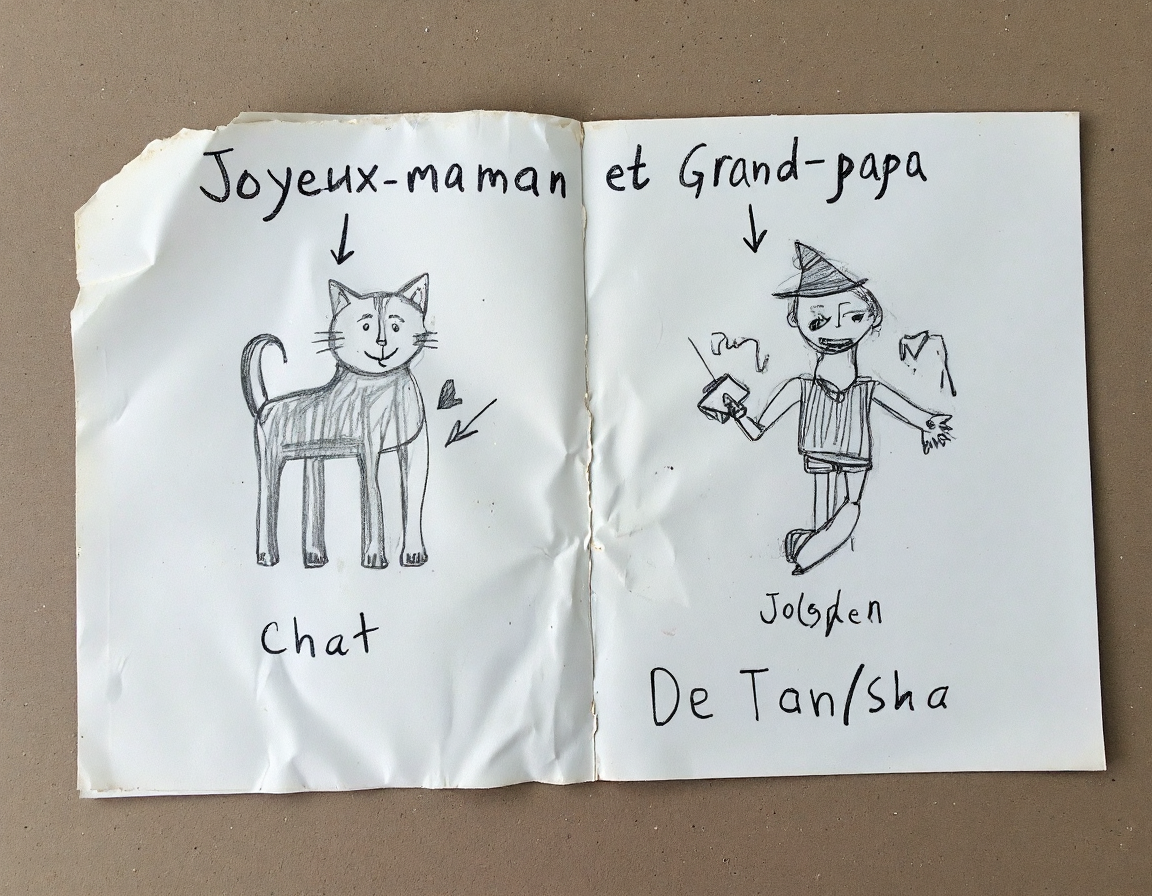 Joyeux-maman et Grand-papa
Chat
De Tan/sha